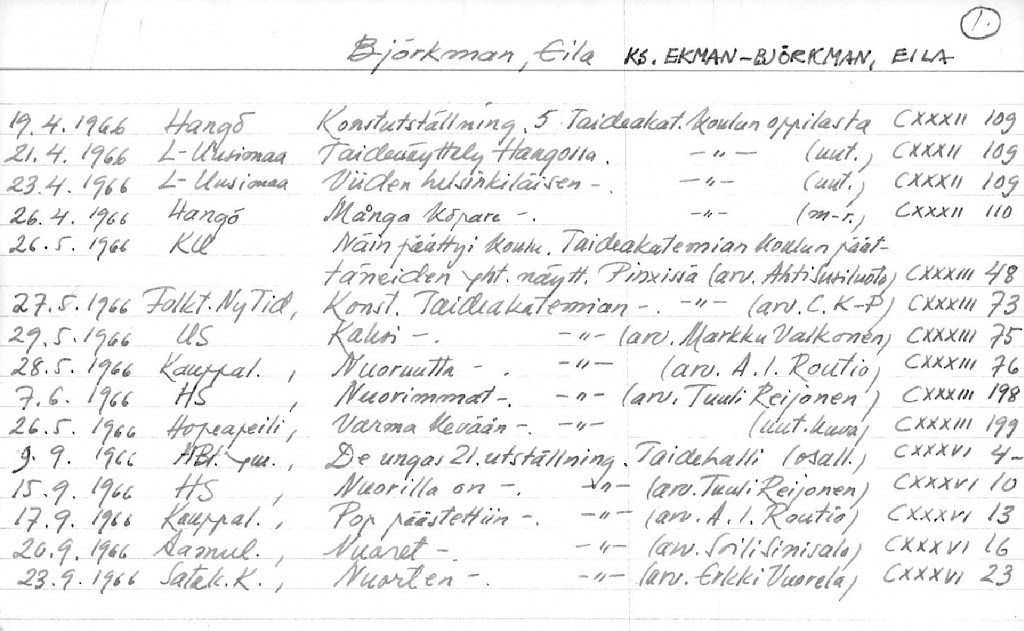 1.
Björkman, Eila KS. EKMAN-BJÖRKMAN, EILA
19.4.1966 Hangö Konstutställning. 5 Taideakat. koulun oppilasta CXXXII 109
21.4.1966 L-Uusimaa Taidenäyttely Hangossa. -"- (uut.) CXXXII 109
23.4.1966 L-Uusimaa Viiden helsinkiläisen -. -"- (uut.) CXXXII 109
26.4.1966 Hangö Många köpare -. -"- (m-r.) CXXXII 110
26.5.1966 KU Näin päättyi koulu. Taideakatemian koulun päät-
täneiden yht. näytt. Pinxissä (arv. Ahti Susiluoto) CXXXIII 48
27.5.1966 Folkt. Ny Tid, Konst. Taideakatemian -. -"- (arv. C. K-P) CXXXIII 73
29.5.1966 US Kaksi -. -"- (arv. Markku Valkonen) CXXXIII 75
28.5.1966 Kauppal., Nuoruutta -. -"- (arv. A. I. Routio) CXXXIII 76
7.6.1966 HS, Nuorimmat -. -"- (arv. Tuuli Reijonen) CXXXIII 198
26.5.1966 Hopeapeili, Varma kevään -. -"- (uut. kuva) CXXXIII 199
9.9.1966 HBl. ym., De ungas 21. utställning. Taidehalli (osall.) CXXXVI 4-
15.9.1966 HS, Nuorilla on -. -"- (arv. Tuuli Reijonen) CXXXVI 10
17.9.1966 Kauppal., Pop päästettiin -. -"- (arv. A. I. Routio) CXXXVI 13
20.9.1966 Aamul., Nuoret -. -"- (arv. Soili Sinisalo) CXXXVI 16
23.9.1966 Satak. K., Nuorten -. -"- (arv. Erkki Vuorela) CXXXVI 23